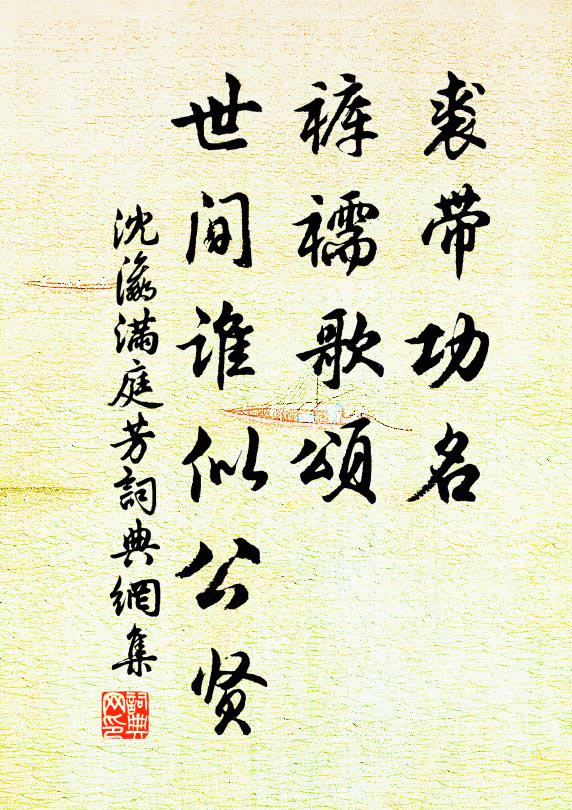 裘带功名
裤襦歌颂
世间谁似公贤
沈瀛满庭芳詞典網集
詞典网印